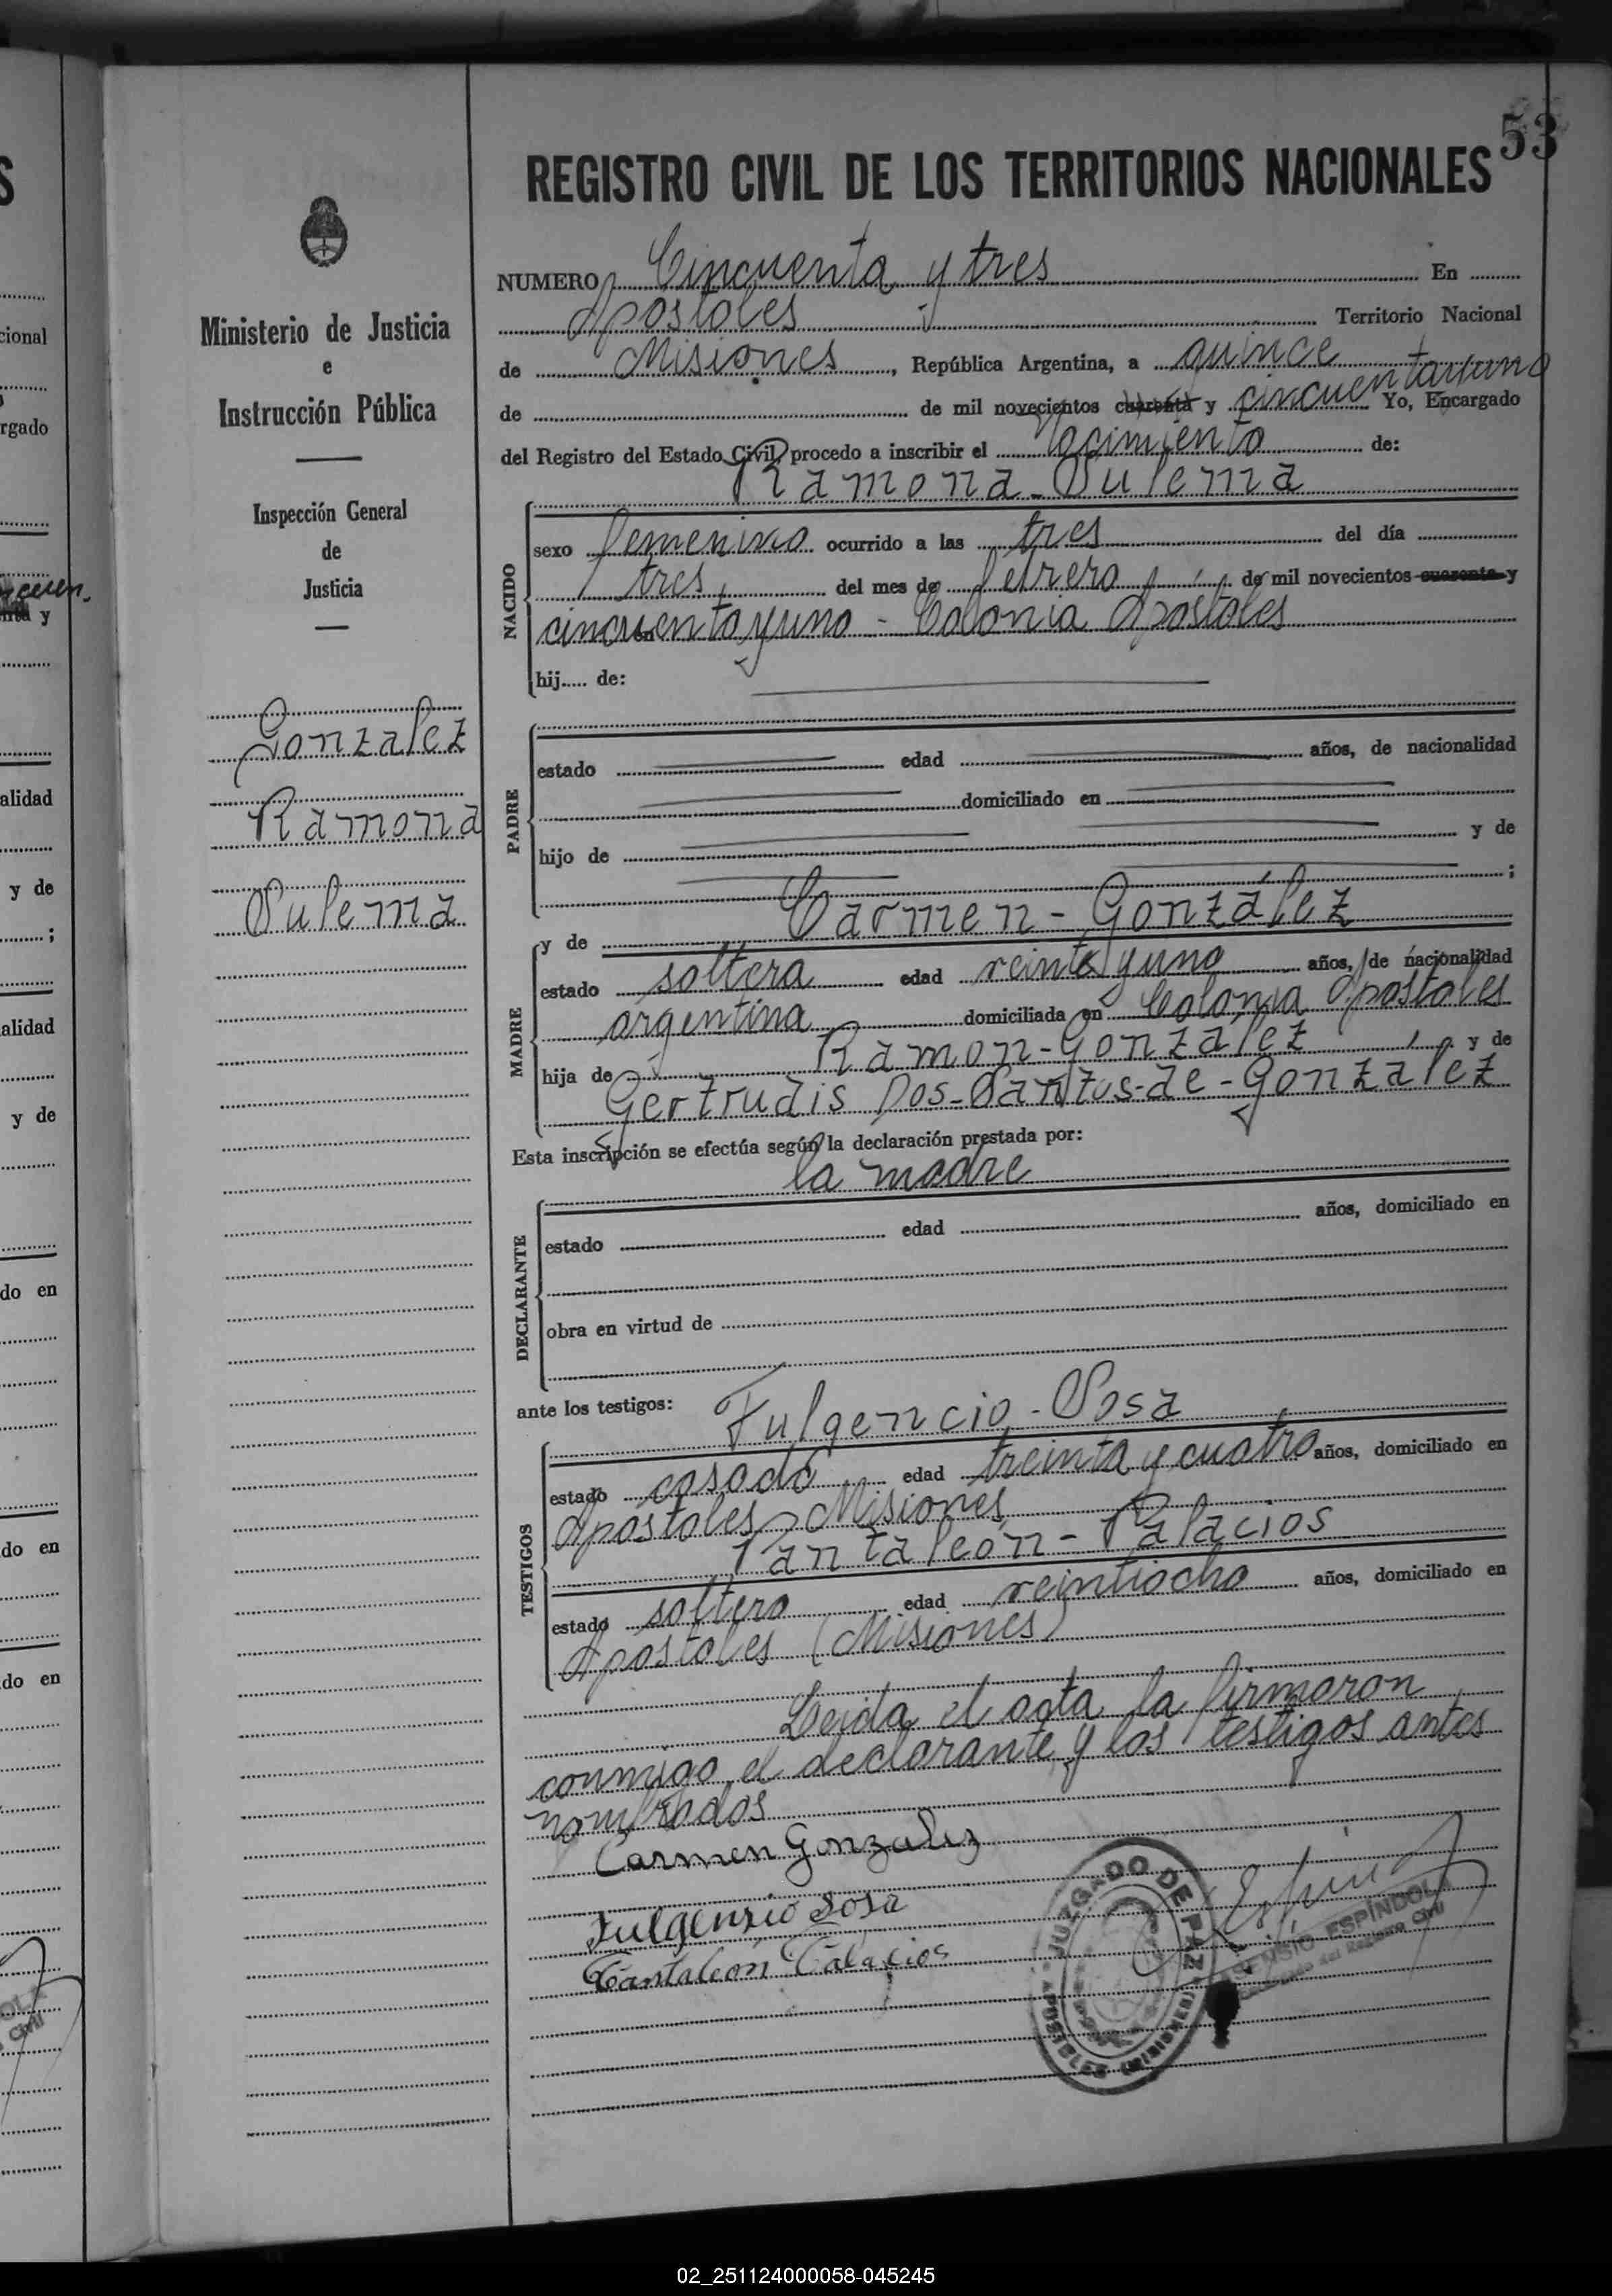 53
REGISTRO CIVIL DE LOS TERRITORIOS NACIONALES
Ministerio de Justicia
e
Instrucción Pública
Inspección General
de
Justicia
Gonzalez
Ramona
Sulema
NUMERO Cincuenta y tres En
Apostoles Territorio Nacional
de Misiones, República Argentina, a quince
de de mil novecientos cuarenta y cincuentayuno Yo, Encargado
del Registro del Estado Civil, procedo a inscribir el Nacimiento de:
Ramona - Sulema
NACIDO
sexo femenino ocurrido a las tres del día
tres del mes de febrero de mil novecientos cuarenta y
cincuentayuno - Colonia Apostoles
hij..... de:
PADRE
estado edad años, de nacionalidad
domiciliado en
hijo de y de
;
MADRE
y de Carmen - González
estado soltera edad veinte y uno años, de nacionalidad
argentina domiciliada en Colonia Apostoles
hija de Ramon - Gonzalez, y de
Gertrudis Dos-Santos-de-Gonzalez
Esta inscripción se efectúa según la declaración prestada por:
la madre
DECLARANTE
estado edad años, domiciliado en
obra en virtud de
ante los testigos: Fulgencio - Sosa
TESTIGOS
estado casado edad treinta y cuatro años, domiciliado en
Apostoles, Misiones
Pantaleón - Palacios
estado soltero edad veintiocho años, domiciliado en
Apostoles (Misiones)
Leida el acta la firmaron
conmigo el declarante y los testigos antes
nombrados
Carmen Gonzalez
Fulgensio Sosa
Pantaleón Palacios
JUZGADO DE PAZ
APOSTOLES (MISIONES)
ESPÍNDOLA
del Registro Civil
02_251124000058-045245